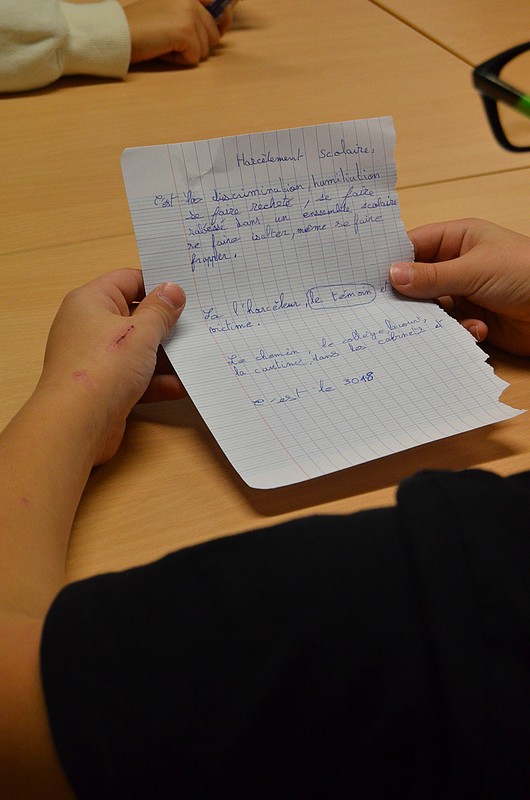 Harcèlement Scolaire.
C'est la discrimination, humiliation
se faire recheté, se faire
rabesse dans un ensemble scolaire
se faire isulter, même se faire
frapper.
La l'harceleur, le témoin et
victime.
Le chemin, le collège,
la cantine, dans les cabinets et
c-est le 3018